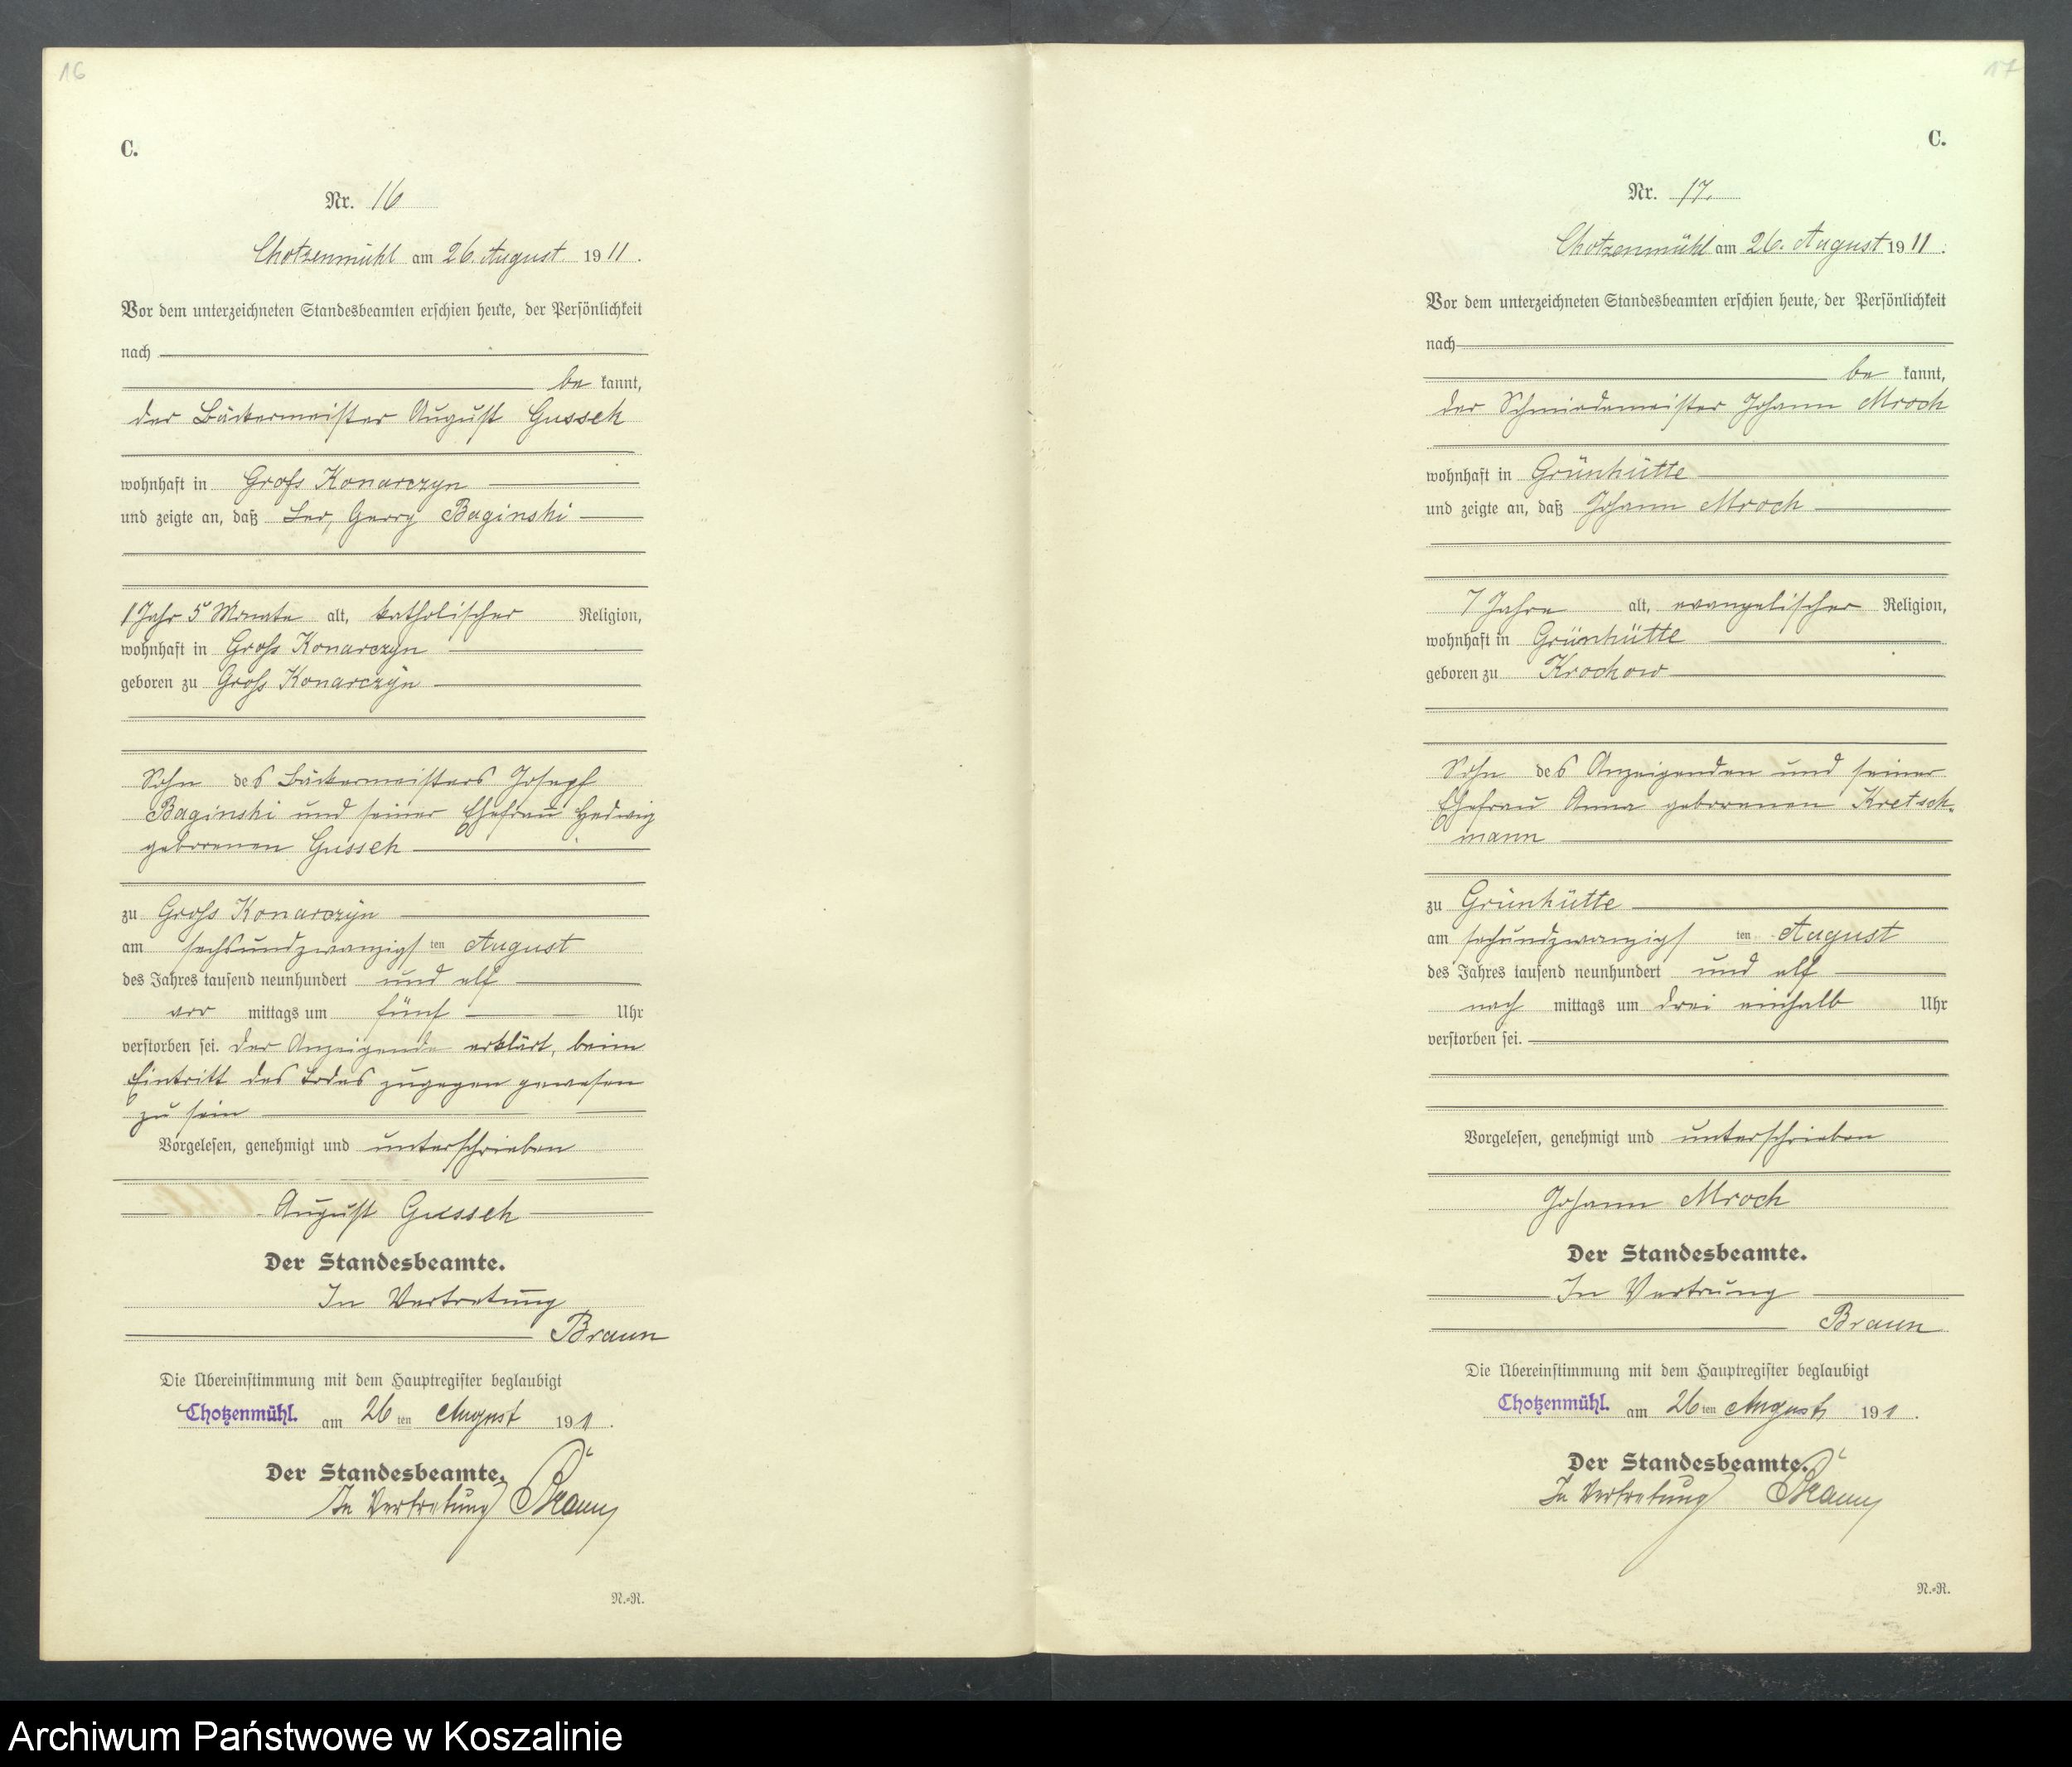 16
C.
Nr. 16
Chotzenmühl am 26. August 1911.
Vor dem unterzeichneten Standesbeamten erschien heute, der Persönlichkeit
nach
be kannt,
der Bäckermeister August Gussek
wohnhaft in Groß Konarczyn
und zeigte an, daß Leo, Georg Baginski
1 Jahr 5 Monate alt, katholischer Religion,
wohnhaft in Groß Konarczyn
geboren zu Groß Konarczyn
Sohn des Bäckermeisters Joseph
Baginski und seiner Ehefrau Hedwig
geborenen Gussek
zu Groß Konarczyn
am sechsundzwanzigsten August
des Jahres tausend neunhundert und elf
vor mittags um fünf Uhr
verstorben sei. Der Anzeigende erklärt, beim
Eintritt des Todes zugegen gewesen
zu sein
Vorgelesen, genehmigt und unterschrieben
August Gussek
Der Standesbeamte.
In Vertretung
Braun
Die Übereinstimmung mit dem Hauptregister beglaubigt
Chotzenmühl. am 26ten August 191 .
Der Standesbeamte.
In Vertretung Braun
N.-R.
17
C.
Nr. 17.
Chotzenmühl am 26. August 1911.
Vor dem unterzeichneten Standesbeamten erschien heute, der Persönlichkeit
nach
be kannt,
der Schmiedemeister Johann Mroch
wohnhaft in Grünhütte
und zeigte an, daß Johann Mroch
7 Jahre alt, evangelischer Religion,
wohnhaft in Grünhütte
geboren zu Krochow
Sohn des Anzeigenden und seiner
Ehefrau Anna geborenen Kretsch-
mann
zu Grünhütte
am sechundzwanzigsten August
des Jahres tausend neunhundert und elf
nach mittags um drei einhalb Uhr
verstorben sei.
Vorgelesen, genehmigt und unterschrieben
Johann Mroch
Der Standesbeamte.
In Vertrung
Braun
Die Übereinstimmung mit dem Hauptregister beglaubigt
Chotzenmühl. am 26ten August 191 .
Der Standesbeamte.
In Vertretung Braun
N.-R.
Archiwum Państwowe w Koszalinie